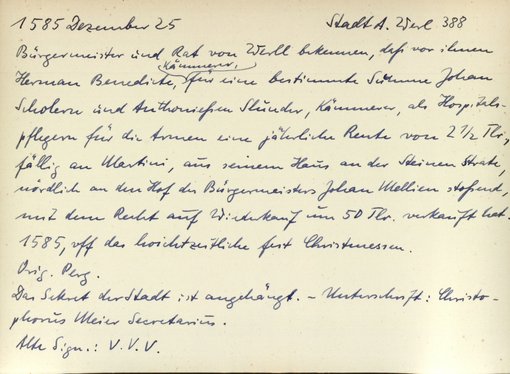 1585 Dezember 25 Stadt A. Werl 388
Bürgermeister und Rat von Werll bekennen, daß vor ihnen
Kämmerer,
Herman Benedicte, für eine bestimmte Summe Johan
Scholern und Anthonießen Slünder, Kämmerer, als Hospitals-
pflegern für die Armen eine jährliche Rente von 2 1/2 Tlr,
fällig an Martini, aus seinem Haus an der Steinen Strate,
nördlich an den Hof des Bürgermeisters Johan Mellien stoßend,
mit dem Recht auf Wiederkauf um 50 Tlr. verkauft hat.
1585, vff das hoichtzeitliche fest Christmessen.
Orig. Perg.
Das Sekret der Stadt ist angehängt. - Unterschrift: Christo-
phorus Meier Secretarius.
Alte Sign.: V. V. V.